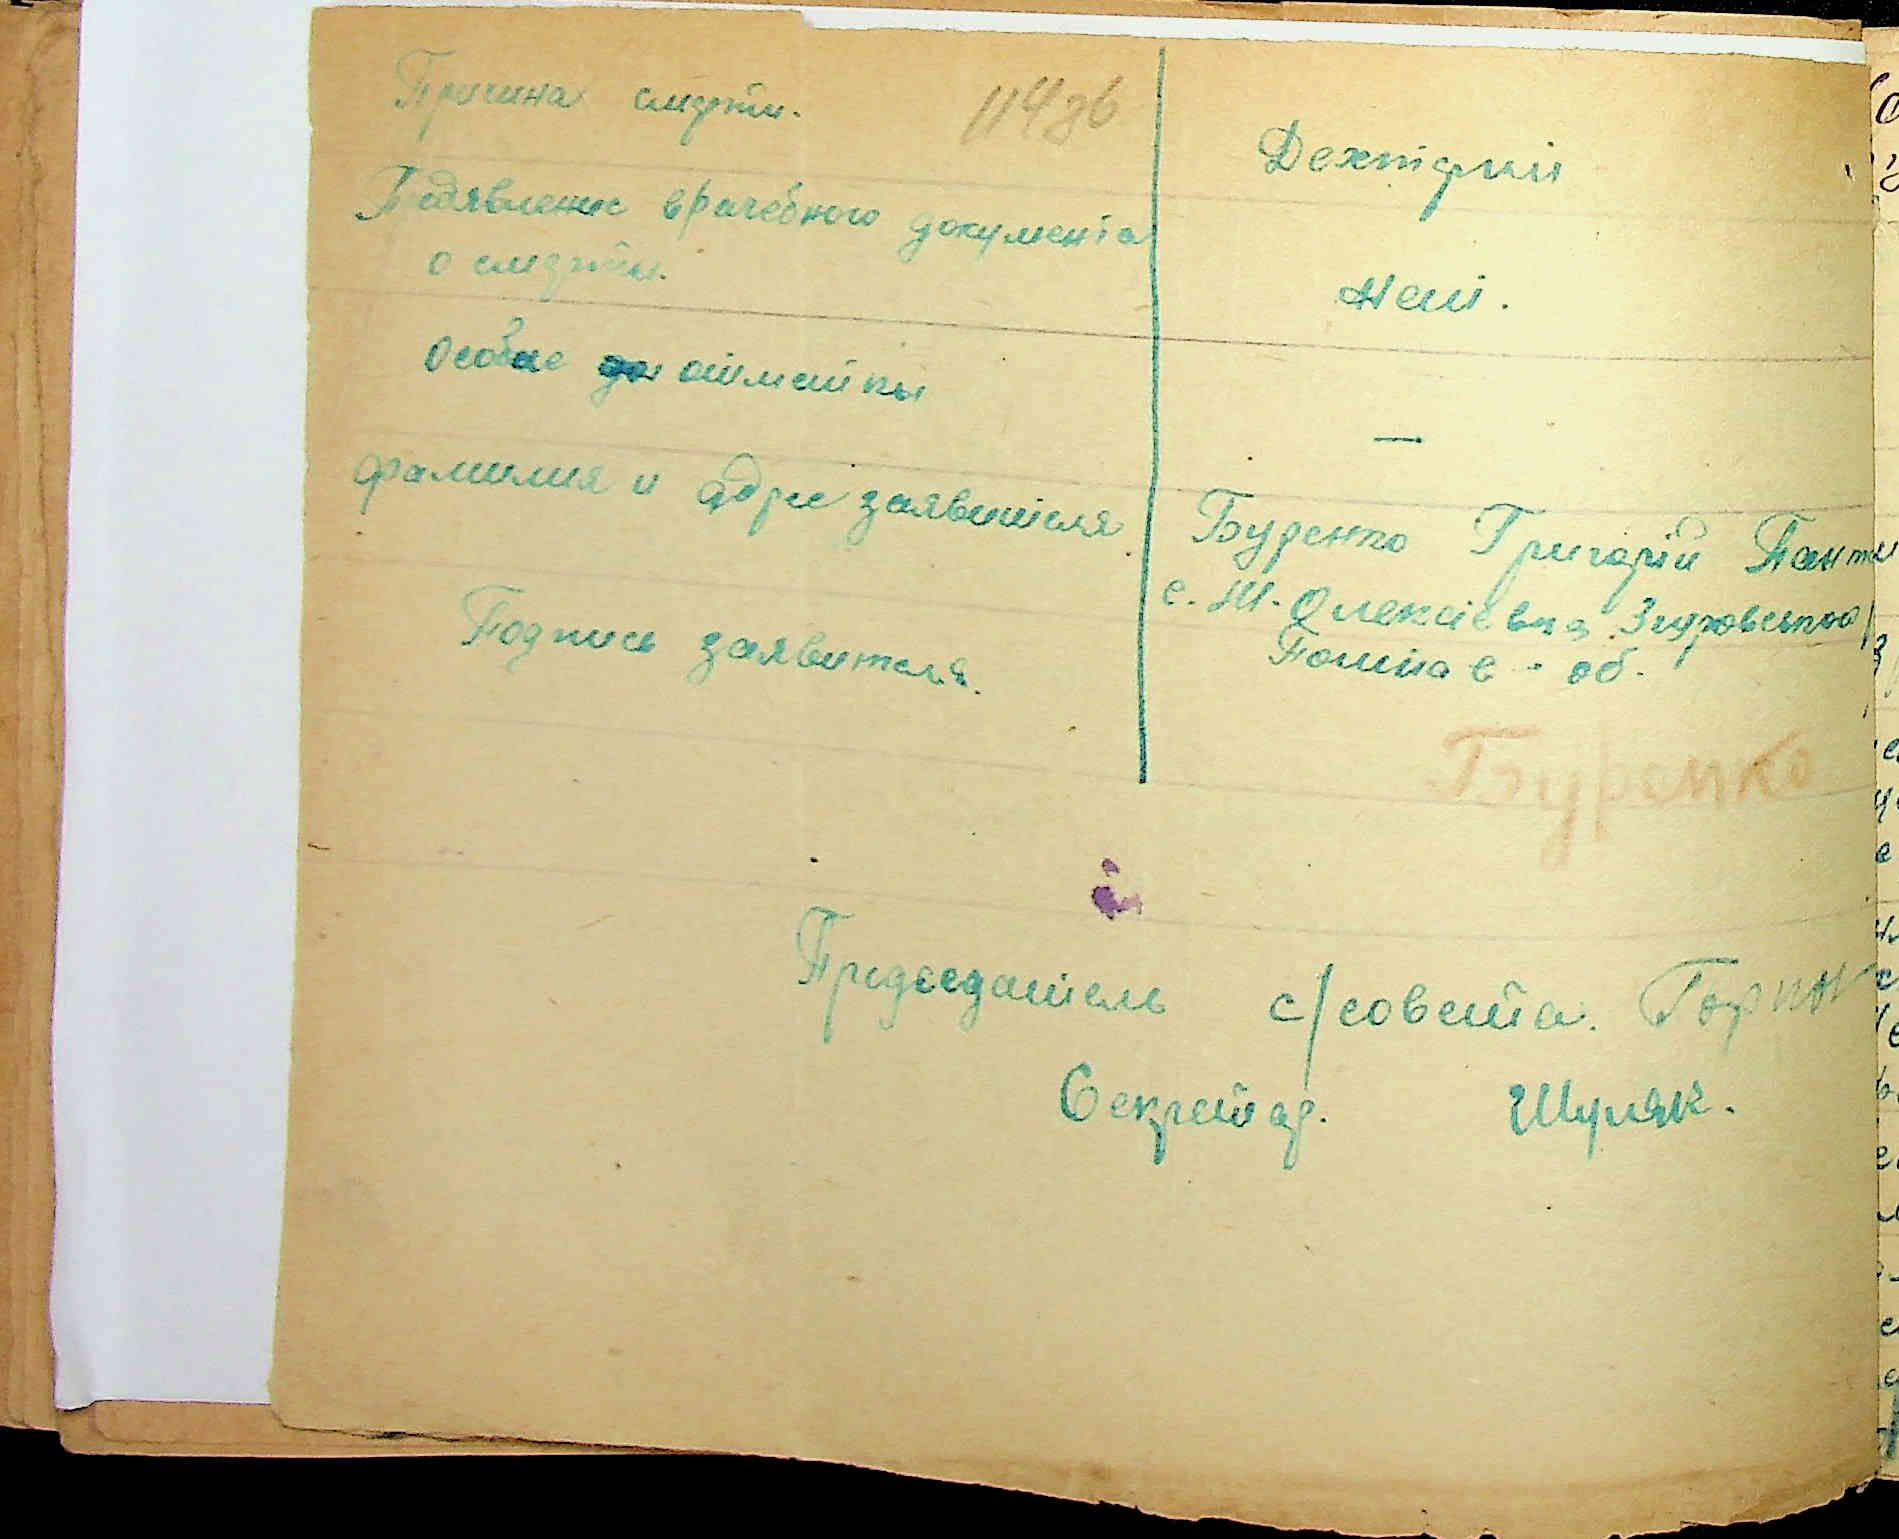 Причина смерти.
114зв
Дехтірий
Предявление врачебного документа
о смерти.
Нет.
Особые отметки
—
Фамилия и адрес заявителя
Буренко Григорій Пант
с. М. Олексіевка Згуровського
Полтав - об.
Подпись заявителя.
Буренко
Председатель с/совета.
Секретар. Шуляк.